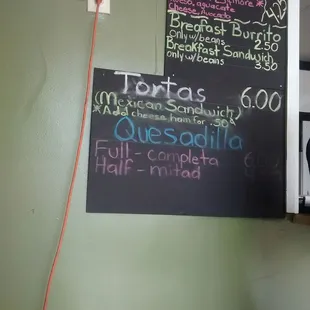 aguacate
Cheese, Avocado
Breafast Burrito
only w/beans 2.50
Breakfast Sandwich
only w/beans 3.50
Tortas
(Mexican Sandwich) 6.00
*Add cheese ham for .50¢
Quesadilla
Full - completa
Half - mitad